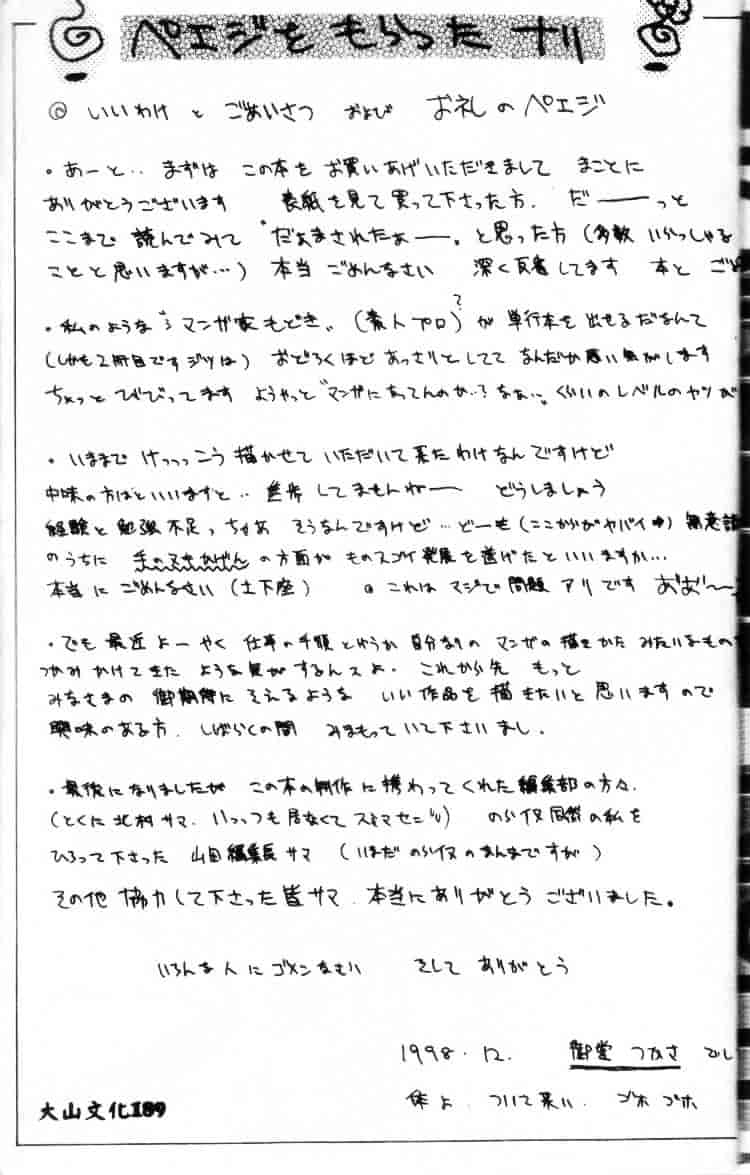 ペエジをもらったナリ
@ いいわけ と ごあいさつ および お礼のペエジ
・あーと‥ まずは この本を お買いあげいただきまして まことに
ありがとうございます 表紙を見て買って下さった方. だーーっと
ここまで 読んでみて "だぁまされたぁー。と思った方(多数 いらっしゃる
ことと思いますが…) 本当 ごめんなさい 深く反省してます 本と
・私のような "マンガ家もどき〟(素人プロ?)が 単行本を出せるだなんて
(しかも2冊目です ジツは) おどろくほど あっさりとしてて なんだか悪い気がします
ちょっと びびってます ようやっと "マンガになってんのか‥? なぁ…。くらいのレベルのヤツが
・いままで けっっっこう 描かせて いただいて来たわけなんですけど
中味の方はといいますと‥ 進歩 してませんねー どうしましょう
経験と 勉強不足っちゃあ そうなんですけど… どーも(ここからがヤバイ) 無意識
のうちに 手のヌキかげん の方面が ものスゴイ発展を遂げたといいますか…
本当に ごめんなさい(土下座) @ これは マジで問題 アリです
・でも 最近 よーやく 仕事の手順 とゆうか 自分なりの マンガの描きかた みたいなもの
つかみかけてきた ような気がするんスよ. これから先 もっと
みなさまの 御期待に そえるような いい作品を 描きたいと思いますので
興味のある方. しばらくの間 みまもって いて下さいまし.
・最後になりましたが この本の制作に携わってくれた編集部の方々.
(とくに 北村サマ. いっっつも居なくてスイマセニ) のらイヌ同然の私を
ひろって下さった 山田編集長サマ (いまだ のらイヌのまんまですが)
その他 協力して下さった皆サマ. 本当にありがとうございました。
いろんな人にゴメンなさい そして ありがとう
1998.12. 御堂 つかさ でし
体よ. ついて来い. ゴホゴホ
大山文化189